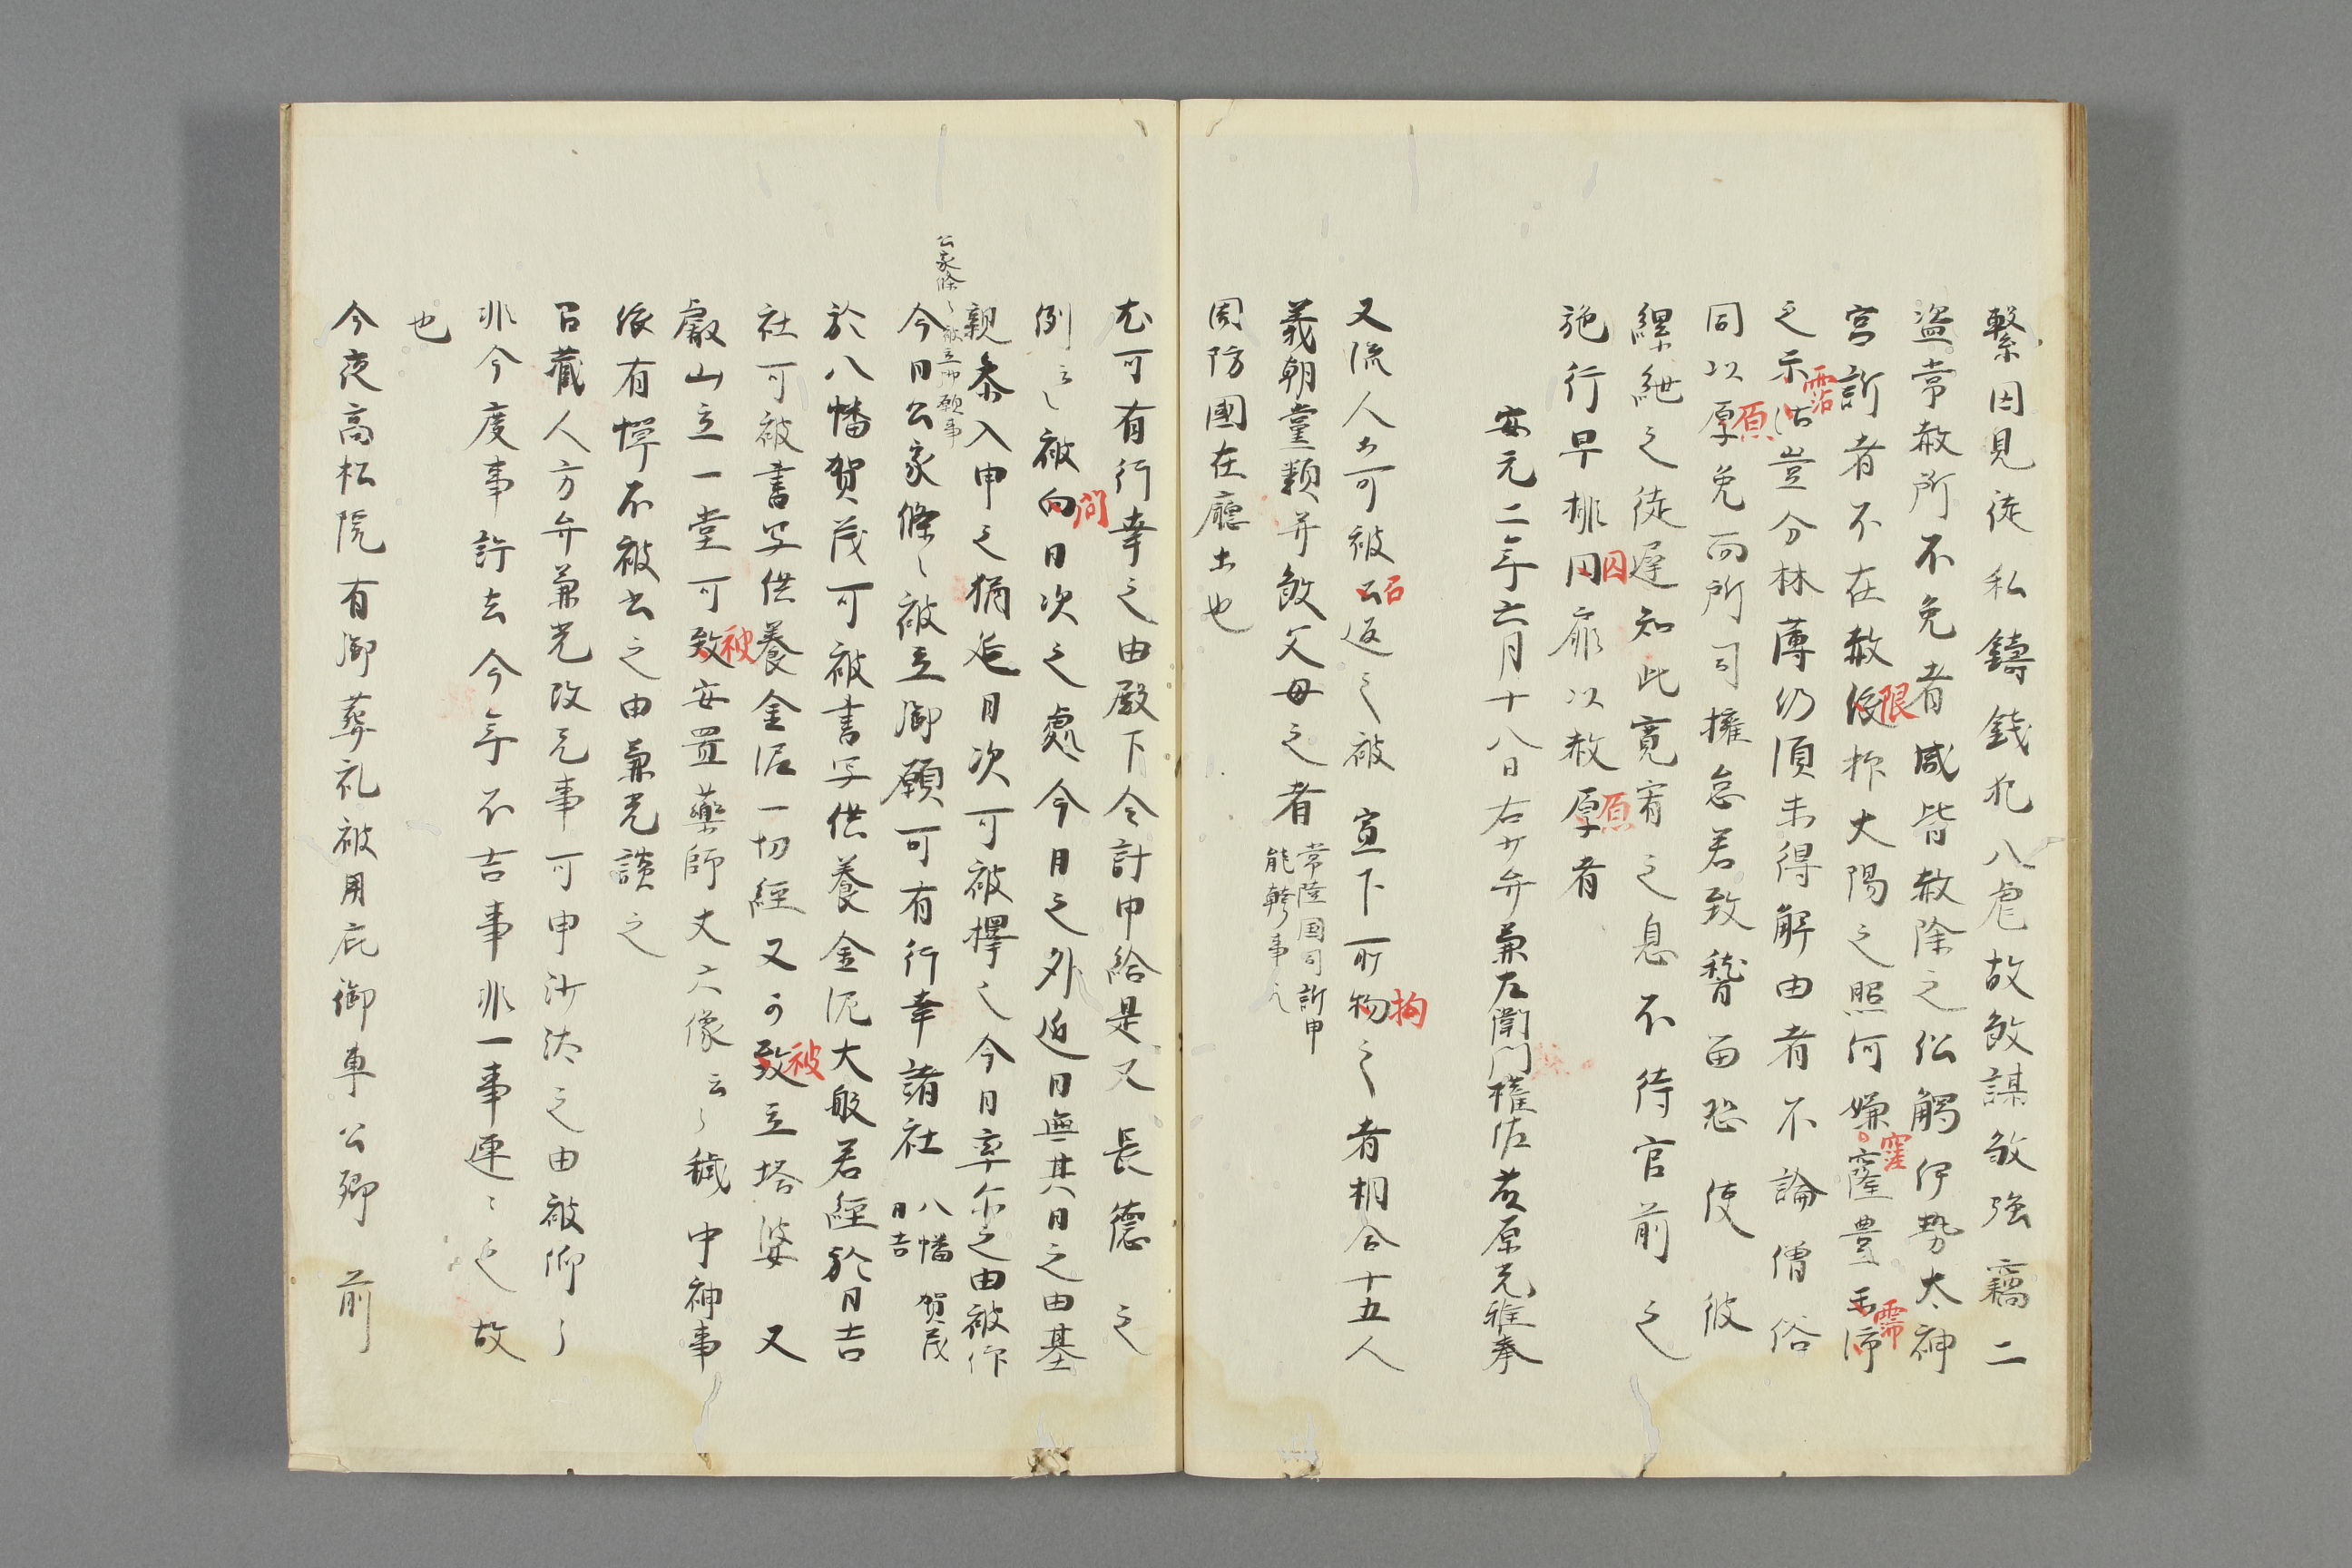 繫囚見徒私鑄錢犯八虐故敓謀敓強竊二
盜常赦所不免者咸皆赦除之但觸伊勢太神
宮訴者不在赦後限抑大陽之照何嫌窪窿豊玉霈
之示沾霑豈分林薄仍須未得解由者不論僧俗
同以厚原免而所司擁怠若致稽留恐使彼
縲紲之徒遅知此寛宥之息不待官前之
施行早排円囚扉以赦厚原者
安元二年六月十八日右少弁兼左衛門権佐藤原光雅奉
又流人等可被召返之被宣下所物拘之者相合十五人
義朝黨類并敓父母之者常陸国司訴申
能幹事之
周防國在廳等也
尤可有行幸之由殿下令計申給是又長德之
例云々被向問日次之處今月之外近日無其日之由基
親参入申之猶近日次可被擇之今日率尓之由被仰
公家條々被立御願事
今日公家條々被立御願可有行幸諸社八幡賀茂
日吉
於八幡賀茂可被書写供養金泥大般若經於日吉
社可被書写供養金泥一切經又可致被立塔婆又
叡山立一堂可致被安置藥師丈六像云々穢中神事
依有憚不被出之由兼光談之
召蔵人方弁兼光改元事可申沙汰之由被仰了
非今度事許去今年不吉事非一事連々之故
也
今夜高松院有御葬礼被用庇御車公卿前